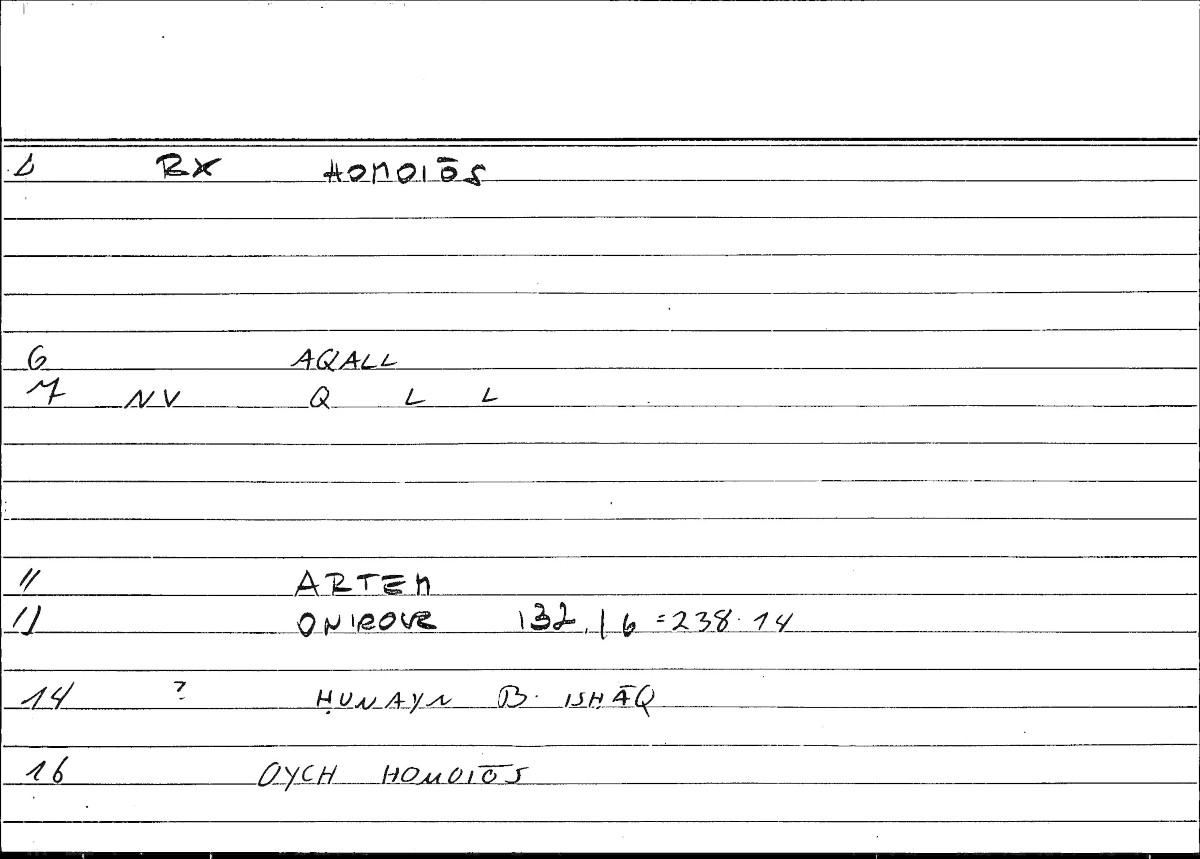 RX HOMOIŌS
6 AQALL
7 NV Q L L
11 ARTEM
ONIROCR 132, 16 = 238.14
14 ? ḤUNAYN B. ISḤĀQ
16 OYCH HOMOIŌS